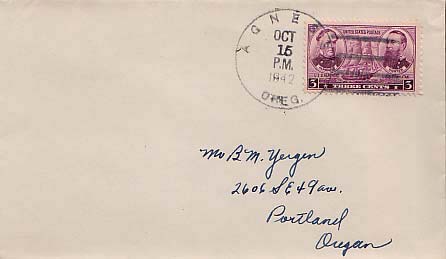 AGNES
OCT
15
P.M.
1942
OREG.
UNITED STATES POSTAGE
3 THREE CENTS 3
Mr B.M. Yergen
2606 SE 49 av.
Portland
Oregon